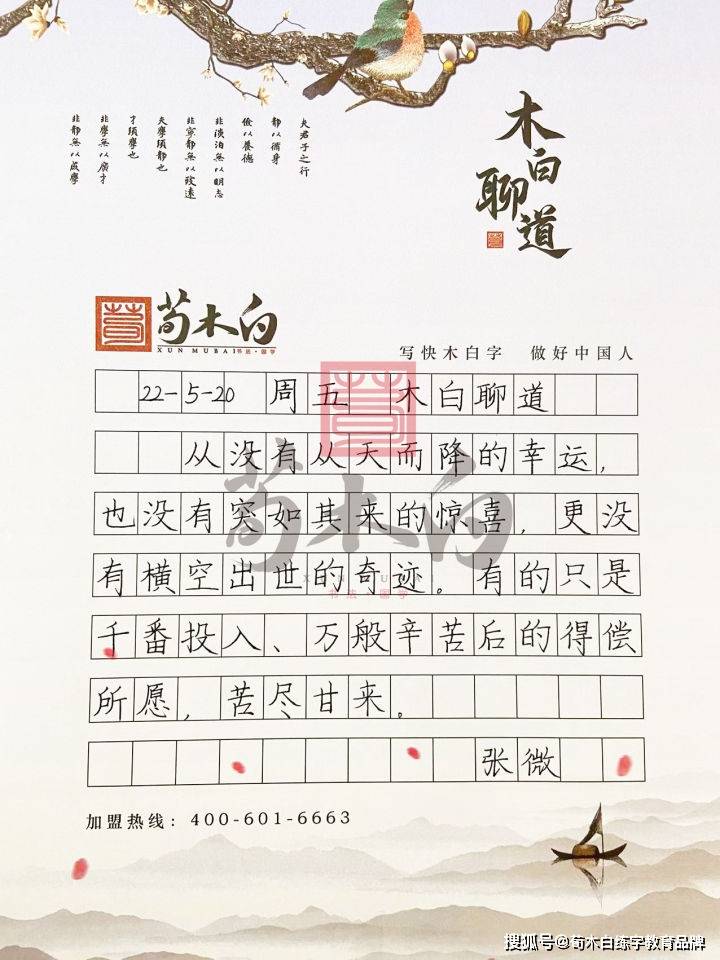 夫君子之行
靜以脩身
儉以養德
非淡泊無以明志
非寧靜無以致遠
夫學須靜也
才須學也
非學無以廣才
非靜無以成學
木白聊道
荀木白
XUN MUBAI 书法·国学
写快木白字 做好中国人
22-5-20 周五 木白聊道
从没有从天而降的幸运，
也没有突如其来的惊喜，更没
有横空出世的奇迹。有的只是
千番投入、万般辛苦后的得偿
所愿，苦尽甘来。
张微
荀木白
XUN MUBAI
书法·国学
加盟热线：400-601-6663
搜狐号@荀木白练字教育品牌